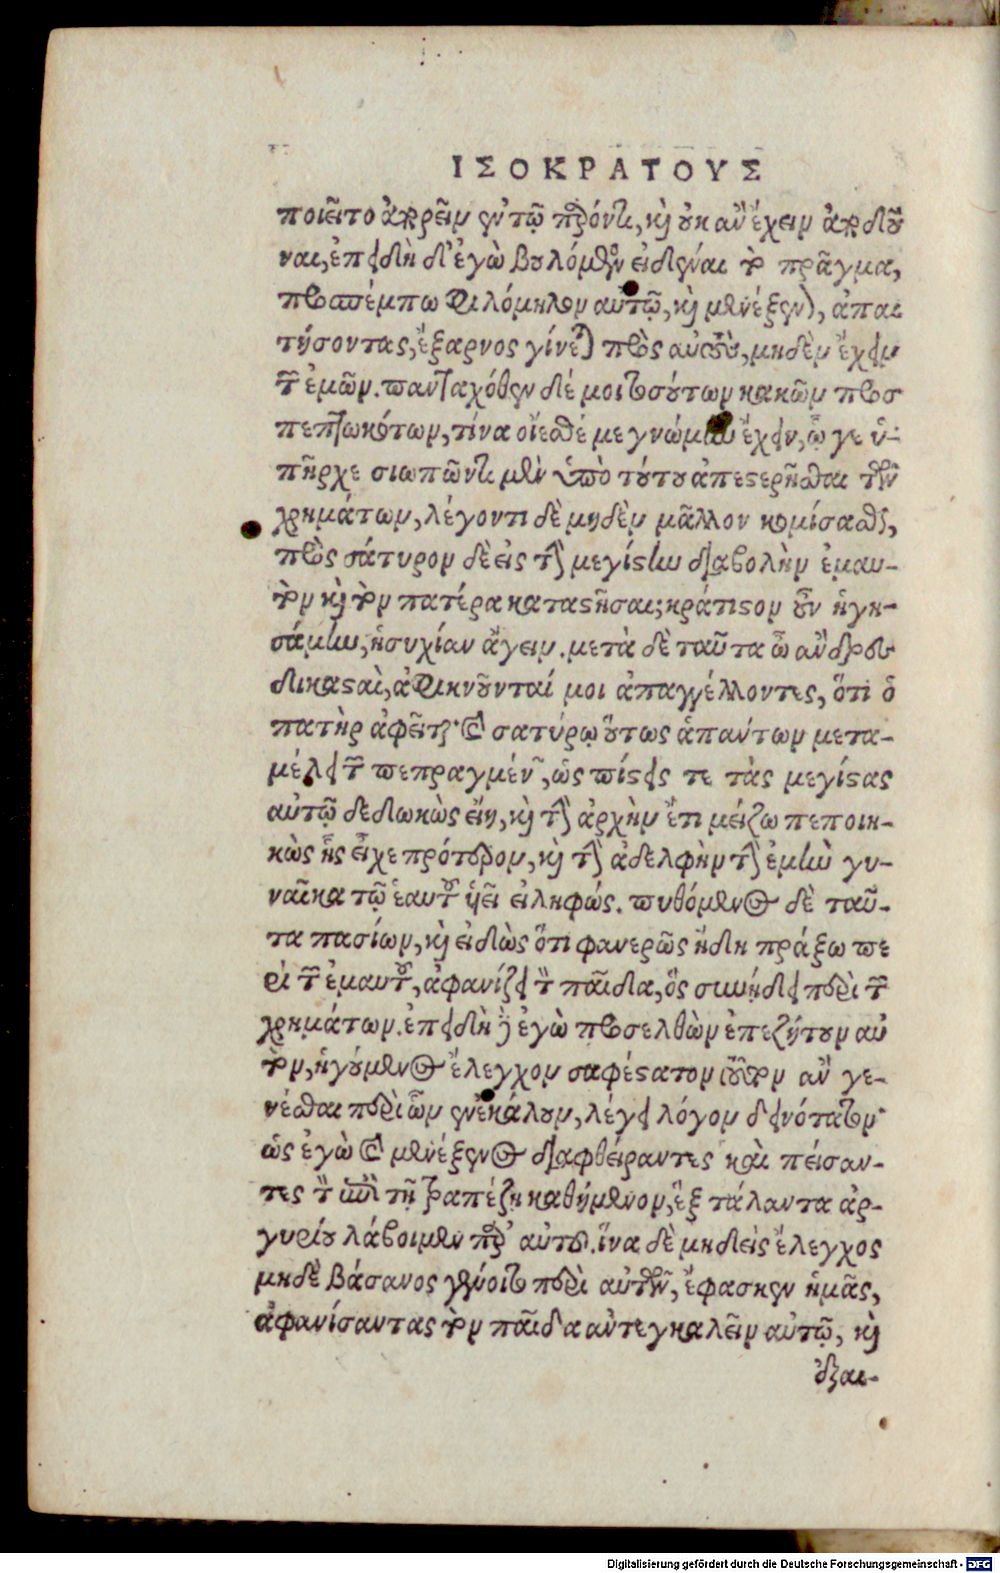 ΙΣΟΚΡΑΤΟΥΣ
ποιεῖτο ἀπορεῖν ἐν τῷ παρόντι, καὶ οὐκ ἂν ἔχειν ἀποδοῦ
ναι, ἐπειδὴ δ' ἐγὼ βουλόμενος εἰδέναι τὸ πρᾶγμα,
προσπέμπω Φιλόμηλον αὐτῷ, καὶ μενέξενον, ἀπαι
τήσοντας, ἔξαρνος γίνεται πρὸς αὐτοὺς, μηδὲν ἔχειν
τῶν ἐμῶν. πανταχόθεν δέ μοι τοσούτων κακῶν προσ
πεπτωκότων, τίνα οἴεσθέ με γνώμην ἔχειν, ᾧ γε ὑ-
πῆρχε σιωπῶντι μὲν ὑπὸ τούτου ἀπεστερῆσθαι τῶν
χρημάτων, λέγοντι δὲ μηδὲν μᾶλλον κομίσασθαι,
πρὸς σάτυρον δὲ εἰς τὴν μεγίστην διαβολὴν ἐμαυ-
τὸν καὶ τὸν πατέρα καταστῆσαι; κράτιστον οὖν ἡγη-
σάμην, ἡσυχίαν ἄγειν. μετὰ δὲ ταῦτα ὦ ἄνδρες
δικασταὶ, ἀφικνοῦνταί μοι ἀπαγγέλλοντες, ὅτι ὁ
πατὴρ ἀφεῖται· καὶ σατύρῳ οὕτως ἁπάντων μετα-
μέλει τῶν πεπραγμένων, ὡς πίστεις τε τὰς μεγίστας
αὐτῷ δεδωκὼς εἴη, καὶ τὴν ἀρχὴν ἔτι μείζω πεποιη-
κὼς ἧς εἶχε πρότερον, καὶ τὴν ἀδελφὴν τὴν ἐμὴν γυ-
ναῖκα τῷ ἑαυτοῦ υἱεῖ εἰληφώς. πυθόμενος δὲ ταῦ-
τα πασίων, καὶ εἰδὼς ὅτι φανερῶς ἤδη πράξω πε
ρὶ τῶν ἐμαυτοῦ, ἀφανίζει τὸν παῖδα, ὃς συνῄδει περὶ τῶν
χρημάτων. ἐπειδὴ δὲ ἐγὼ προσελθὼν ἐπεζήτουν αὐ
τὸν, ἡγούμενος ἔλεγχον σαφέστατον τοῦτον ἂν γε-
νέσθαι περὶ ὧν ἐνεκάλουν, λέγει λόγον δεινότατον·
ὡς ἐγὼ καὶ μενέξενος διαφθείραντες καὶ πείσαν-
τες τὸν ἐπὶ τῇ τραπέζῃ καθήμενον, ἓξ τάλαντα ἀρ-
γυρίου λάβοιμεν παρ' αὐτοῦ. ἵνα δὲ μηδεὶς ἔλεγχος
μηδὲ βάσανος γένοιτο περὶ αὐτῶν, ἔφασκεν ἡμᾶς,
ἀφανίσαντας τὸν παῖδα ἀντεγκαλεῖν αὐτῷ, καὶ
ἐξαι-
Digitalisierung gefördert durch die Deutsche Forschungsgemeinschaft - DFG